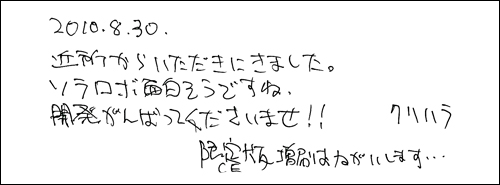 2010.8.30.
近所からいただきにきました。
ソラロボ面白そうですね、
開発がんばってくださいませ!! クリハラ
限定版増刷おねがいします…
CE